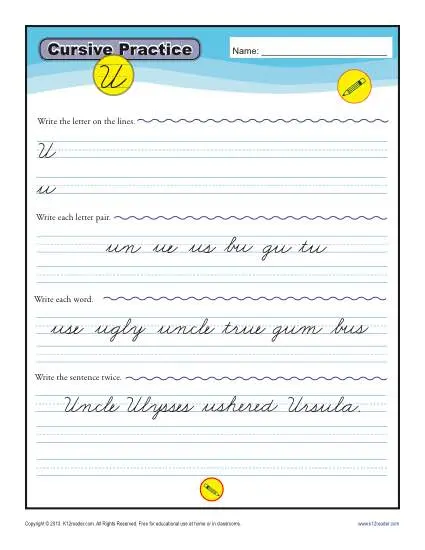 Cursive Practice
Name:
U
Write the letter on the lines.
U
u
Write each letter pair.
un ue us bu gu tu
Write each word.
use ugly uncle true gum bus
Write the sentence twice.
Uncle Ulysses ushered Ursula.
Copyright © 2013 K12reader.com. All Rights Reserved. Free for educational use at home or in classrooms.
www.k12reader.com